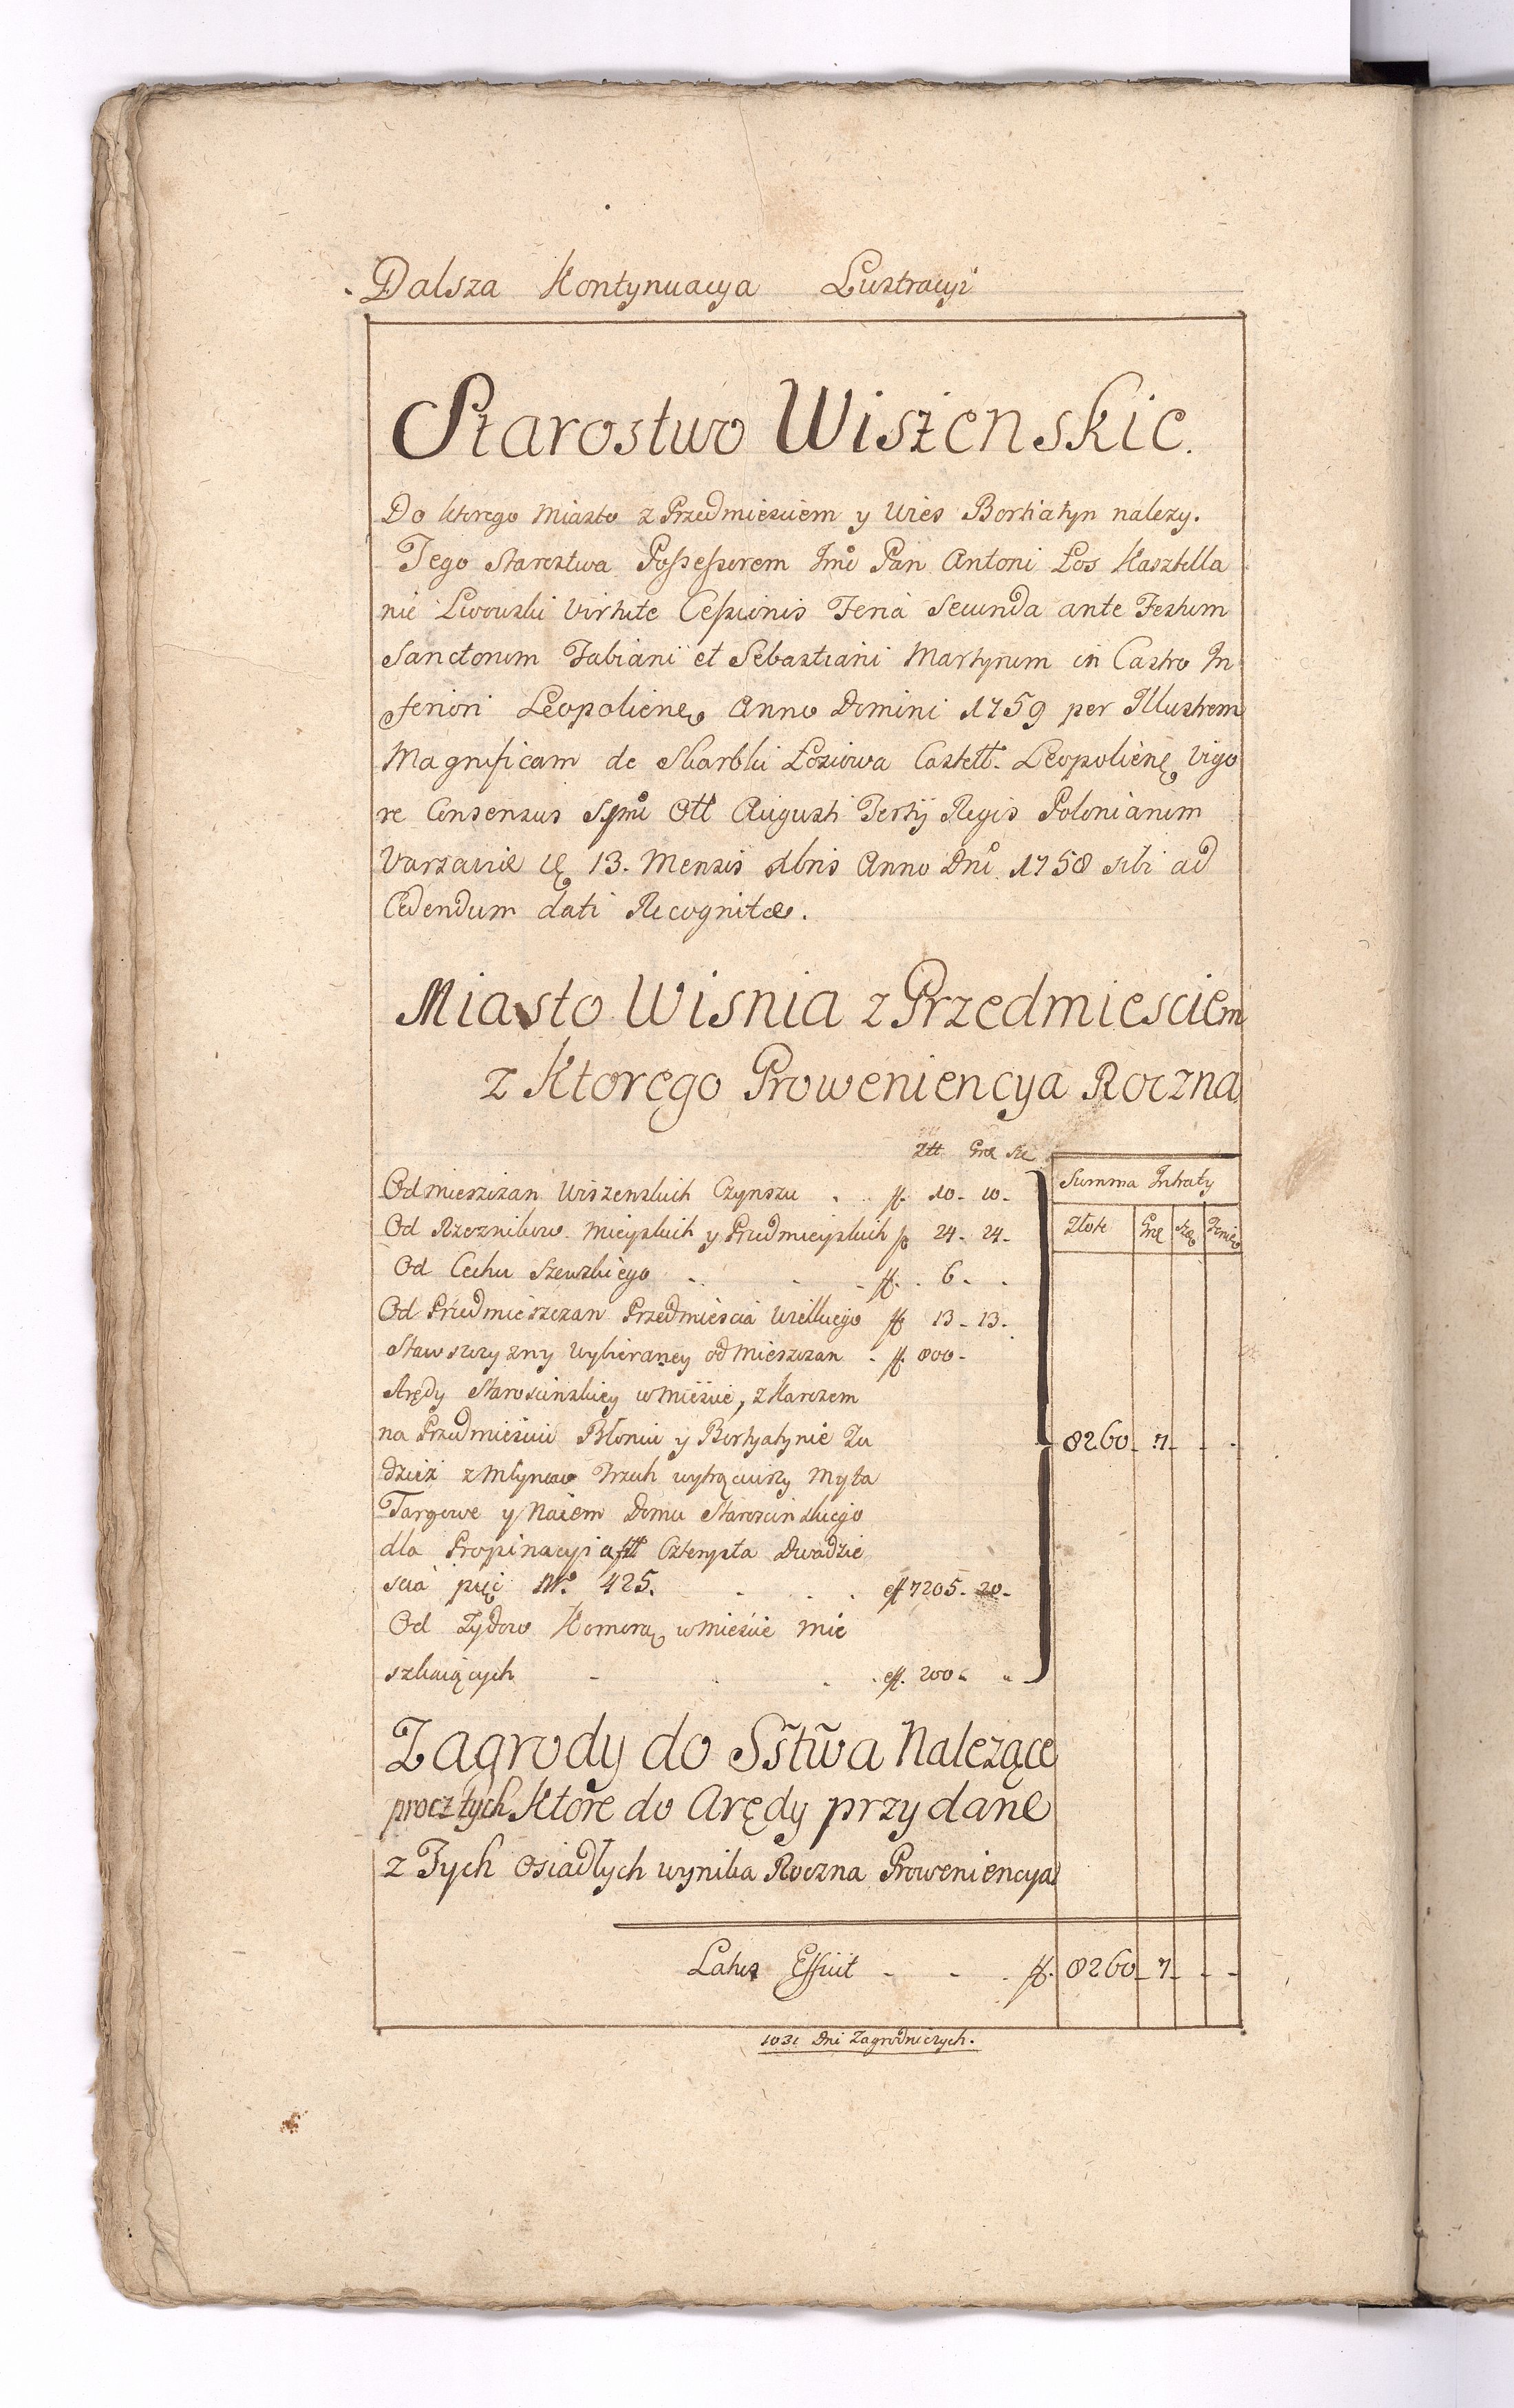 Dalsza Kontynuacya Lustracyi
Starostwo Wiszenskie.
Do ktorego Miasto z Przedmiesciem y Wies Bortiatyn nalezy.
Tego Starostwa Possessorem Jmć Pan Antoni Łos Kasztella
nic Lwowski Virtute Cessionis Feria Secunda ante Festum
Sanctorum Fabiani et Sebastiani Martyrum in Castro In
feriori Leopoliensi Anno Domini 1759 per Illustrem
Magnificam de Skarbki Łosiowa Castell. Leopoliens. Vigo
re Consensus Augusti Tertij Regis Poloniarum
Varsaviæ 13. Mensis Xbris Anno Dni 1758 sibi ad
Cedendum dati Recognitæ.
Miasto Wisnia z Przedmiesciem
z Ktorego Proweniencya Roczna
Złt Gro Sze
Summa Intraty
Od mieszczan Wiszenskich Czynszu . . ff. 10 - 10 -
Złote Gro Sze Denia
Od Rzeznikow Mieyskich y Przedmieyskich ff 24 - 24 -
Od Cechu Szewskiego . . . ff. 6 - .
Od Przedmieszczan Przedmiescia Wielkiego ff 13 - 13 -
Stawszczyzny Wybieraney od Mieszczan - ff. 800 -
Arędy Staroscinskiey w Miescie, z Karczem
na Przedmiesciu Błoniu y Bortyatynie Tu
8260 - 7 - - -
dzież z Młynow Trzech wytrąciwszy Myta
Targowe y Naiem Domu Starościnskiego
dla Propinacyi a ff Czterysta Dwadzie
scia pięć No. 425. . . . ff 7205 - 20 -
Od Zydow Komorą w Miescie Mie
szkaiących - . . . ff. 200 - -
Zagrody do Sstwa Nalezące
procz tych Ktore do Arędy przydane
z Tych Osiadłych wynika Roczna Proweniencya
Latus Efficit - - . ff. 8260 - 7 - - -
1031 Dni Zagrodniczych.